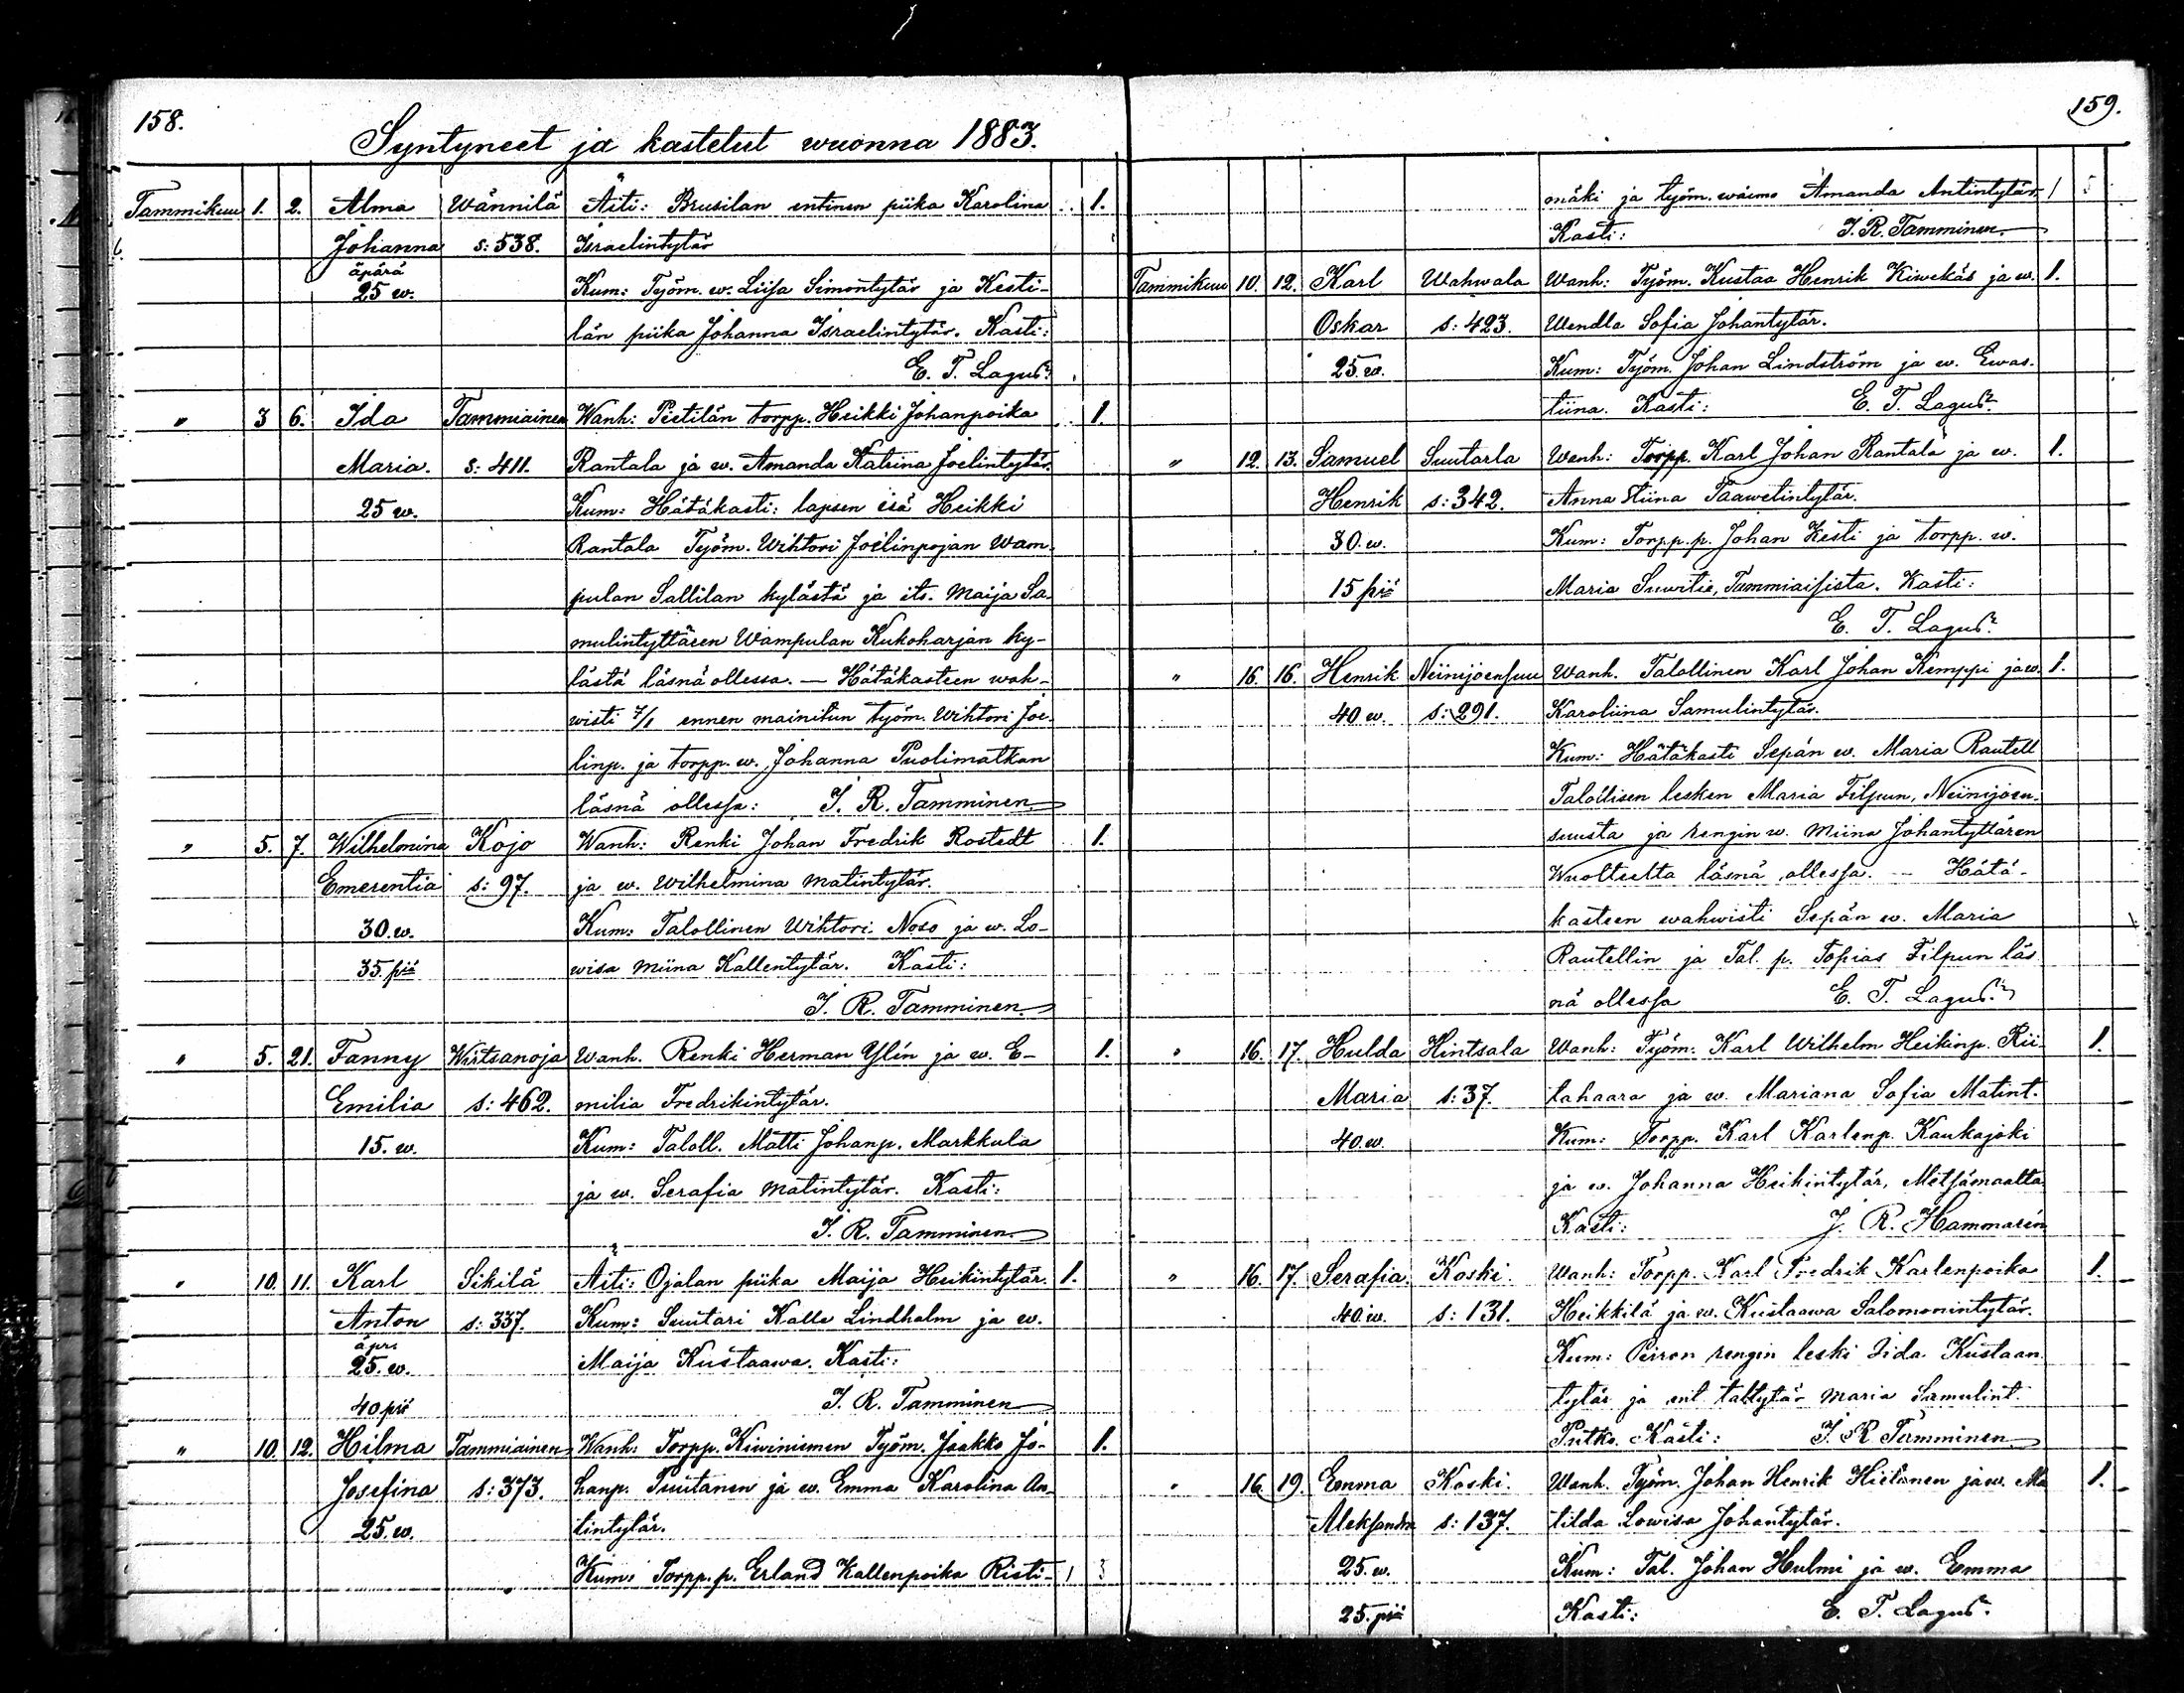 158.
Syntyneet ja kastetut wuonna 1883.
Tammikuu 1. 2. Alma Wännilä Äiti: Brusilan entinen piika Karolina 1.
Johanna s: 538. Israelintytär
äpärä
25 w. Kum: Työm. w. Liisa Simontytär ja Kesti-
län piika Johanna Israelintytär. Kasti:
E. T. Lagus.
" 3 6. Ida Tammiainen Wanh: Pietilän torpp. Heikki Johanpoika 1.
Maria. s: 411. Rantala ja w. Amanda Katrina Joelintytär.
25 w. Kum: Hätäkasti: lapsen isä Heikki
Rantala Työm. Wihtori Joelinpojan Wam-
pulan Sallilan kylästä ja its. Maija Sa-
mulintyttären Wampulan Kukoharjan ky-
lästä läsnä ollessa. — Hätäkasteen wah-
wisti 7/1 ennen mainitun työm. Wihtori Joe-
linp. ja torpp. w. Johanna Puolimatkan
läsnä ollessa: I. R. Tamminen
" 5. 7. Wilhelmina Kojo Wanh: Renki Johan Fredrik Rostedt 1.
Emerentia s: 97. ja w. Wilhelmina Matintytär.
30. w. Kum: Talollinen Wihtori Noso ja w. Lo-
35. piä wisa Miina Kallentytär. Kasti:
I. R. Tamminen
" 5. 21. Fanny Wirtsanoja Wanh. Renki Herman Ylin ja w. E- 1.
Emilia s: 462. milia Fredrikintytär.
15. w. Kum: Taloll. Matti Johanp. Markkula
ja w. Serafia Matintytär. Kasti:
I. R. Tamminen
" 10. 11. Karl Sikilä Äiti: Ojalan piika Maija Heikintytär. 1.
Anton s: 337. Kum: Suutari Kalle Lindholm ja w.
äpr:
25. w. Maija Kustaawa. Kasti:
40 piä I. R. Tamminen
" 10. 12. Hilma Tammiainen Wanh: Torpp. Kiwiniemen Työm. Jaakko Jo- 1.
Josefina s: 373. hanp. Tuutanen ja w. Emma Karolina An-
25. w. tintytär.
Kum: Torpp. p. Erland Kallenpoika Risti- 1 3
159.
mäki ja työm. waimo Amanda Antintytär. 1 5
Kasti: I. R. Tamminen.
Tammikuu 10. 12. Karl Wahwala Wanh: Työm. Kustaa Henrik Kiwekäs ja w. 1.
Oskar s: 423. Wendla Sofia Johantytär.
25. w. Kum: Työm. Johan Lindström ja w. Ewas-
tiina. Kasti: E. T. Lagus.
" 12. 13. Samuel Suutarla Wanh: Torpp. Karl Johan Rantala ja w. 1.
Henrik s: 342. Anna Stiina Taawetintytär.
30. w. Kum: Torpp. p. Johan Kesti ja torpp. w.
15 piä Maria Suwitie, Tammiaisista. Kasti:
E. T. Lagus.
" 16. 16. Henrik Neinijoensuu Wanh. Talollinen Karl Johan Kemppi ja w. 1.
40 w. s: 291. Karoliina Samulintytär.
Kum: Hätäkasti Sepän w. Maria Rautell
Talollisen lesken Maria Filpun, Neinijoen-
suusta ja rengin w. Miina Johantyttären
Wuolteelta läsnä ollessa. — Hätä-
kasteen wahwisti Sepän w. Maria
Rautellin ja Tal. p. Topias Filpun läs
nä ollessa E. T. Lagus.
" 16. 17. Hulda Hintsala Wanh: Työm. Karl Wilhelm Heikinp. Rii- 1.
Maria s: 37. tahaara ja w. Mariana Sofia Matint.
40. w. Kum: Torpp. Karl Karlenp. Kaukajoki
ja w. Johanna Heikintytär, Metsämaalta
Kasti: J. R. Hammarén
" 16. 17. Serafia. Koski. Wanh: Torpp. Karl Fredrik Karlenpoika 1.
40. w. s: 131. Heikkilä ja w. Kustaawa Salomonintytär.
Kum: Perron rengin leski Iida Kustaan
tytär ja ent. taltytär Maria Samulint.
Putko. Kasti: I. R. Tamminen
" 16. 19. Emma Koski. Wanh. Työm. Johan Henrik Hietanen ja w. Ma 1.
Aleksandra s: 137. tilda Lowisa Johantytär.
25. w. Kum: Tal. Johan Hulmi ja w. Emma
25. piä Kasti: E. T. Lagus.